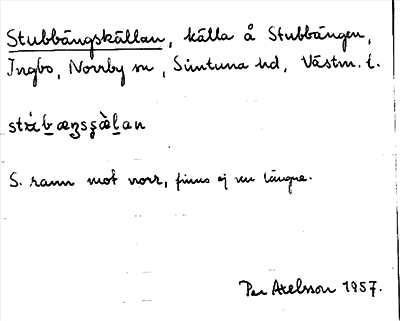 Stubbängskällan, källa å Stubbängen,
Ingbo, Norrby sn, Simtuna hd, Västm. l.
S. rann mot norr, finns ej mer längre.
Per Axelsson 1957.